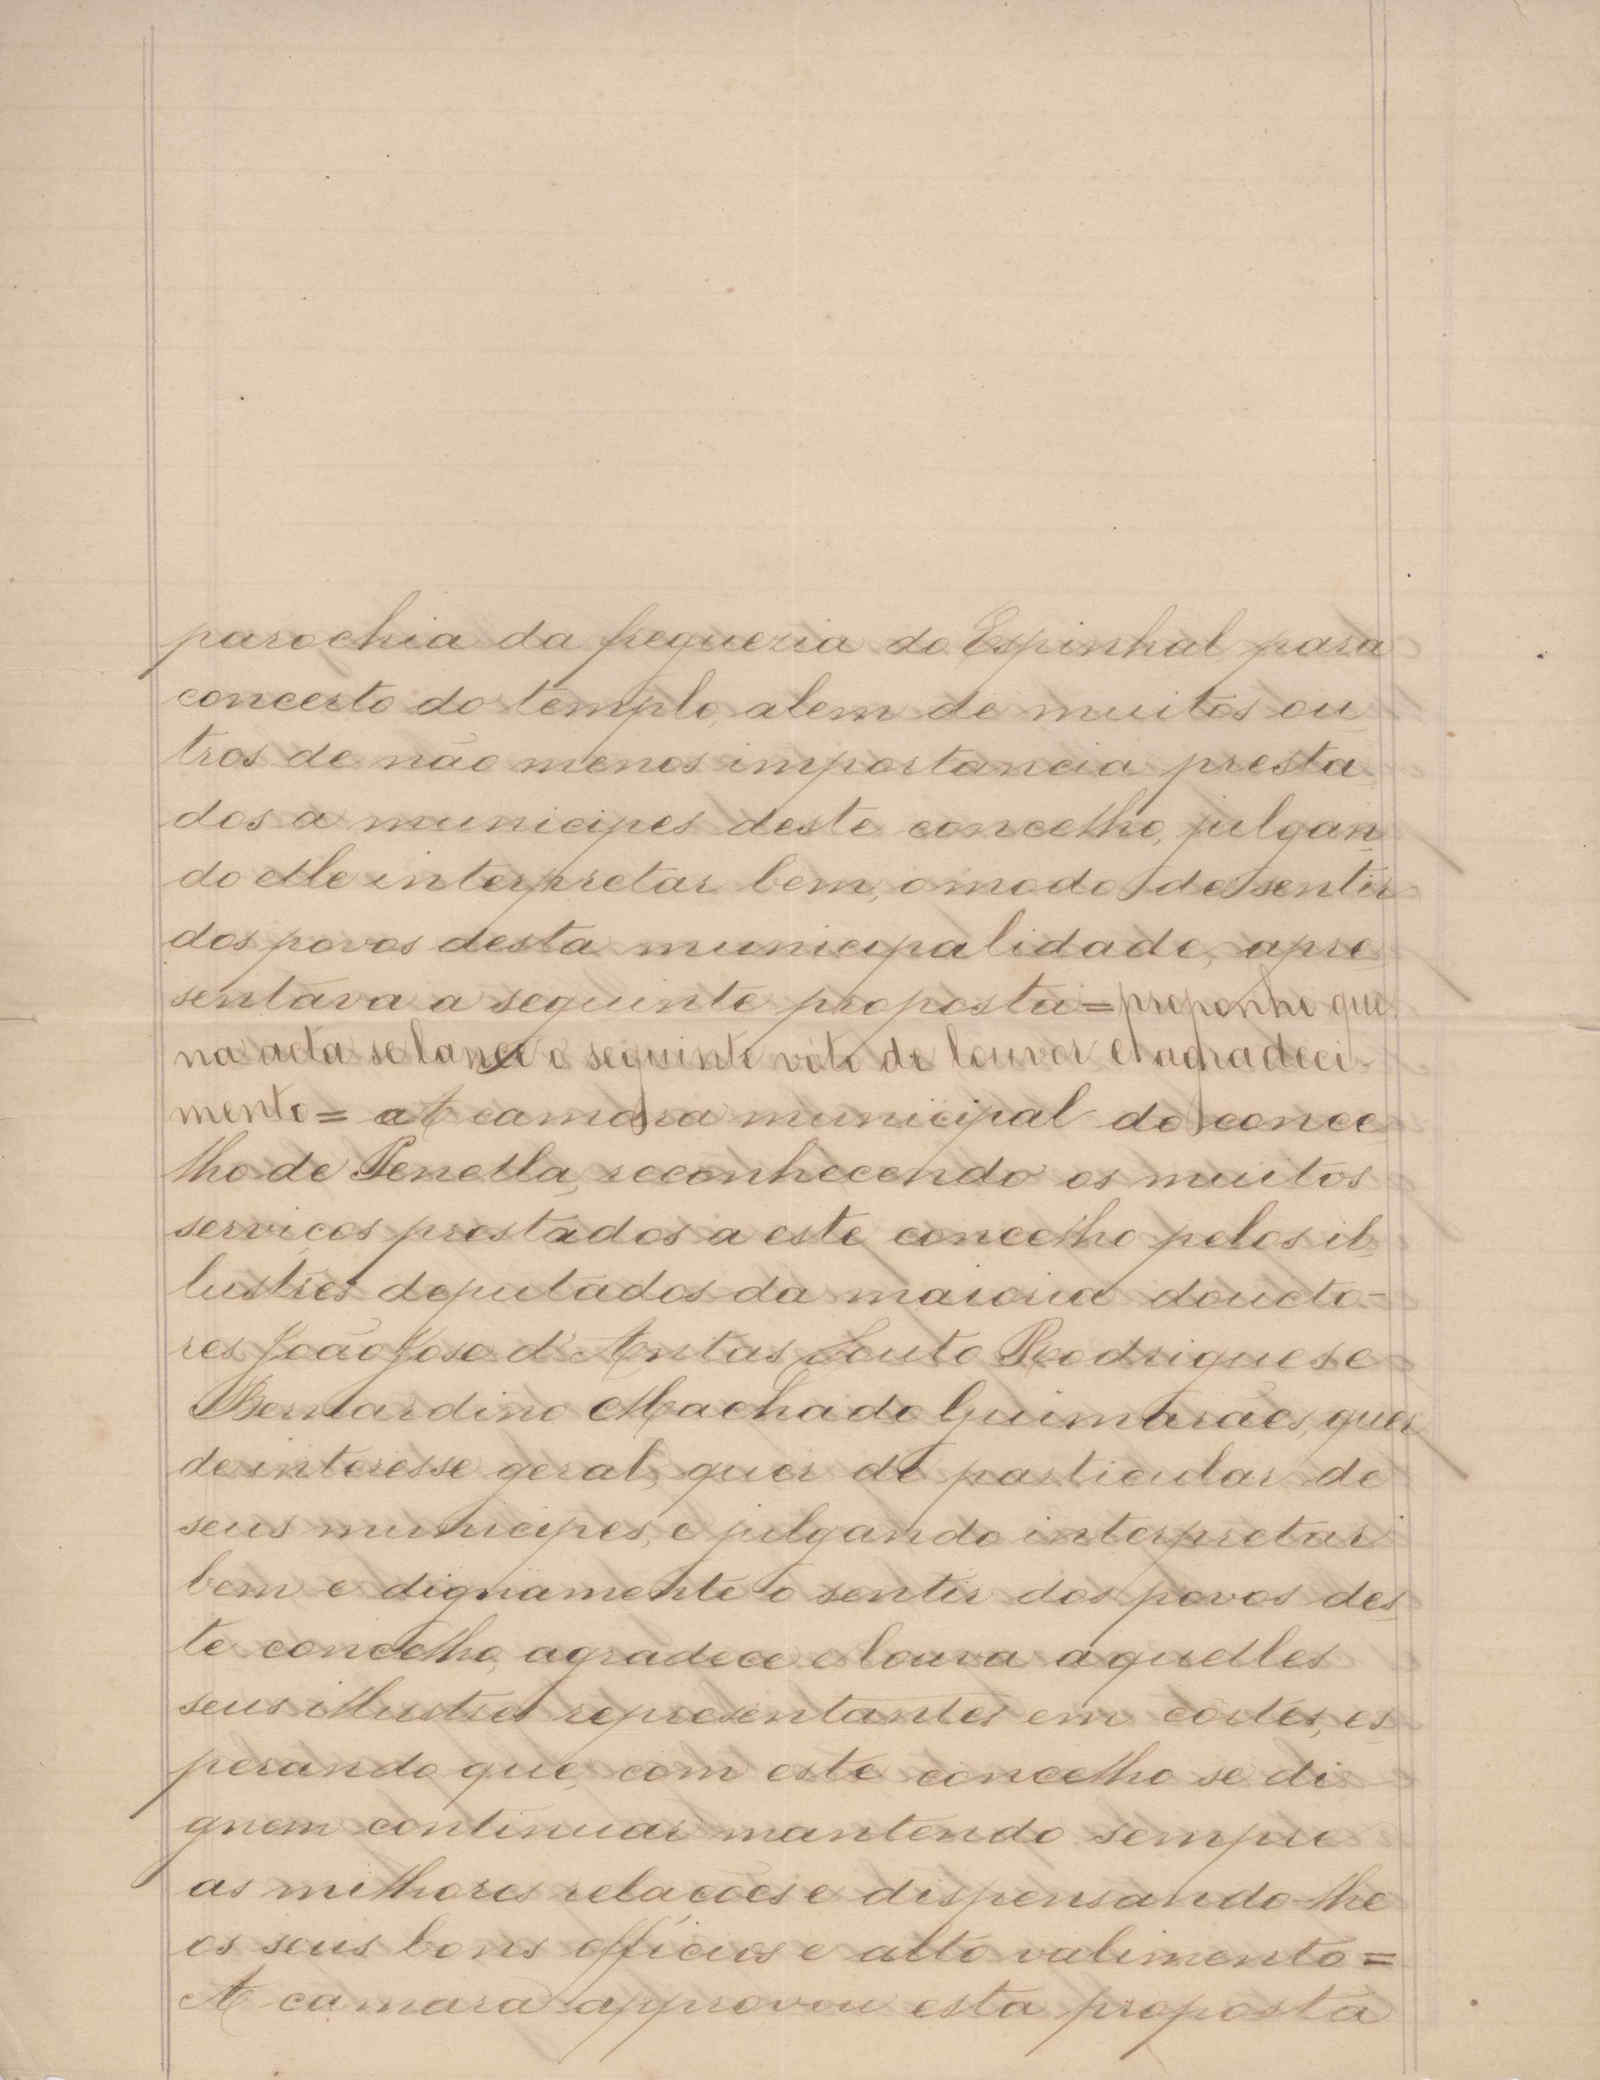 parochia da freguezia do Espinhal para
concerto do templo, alem de muitos ou
tros de não menos importancia presta
dos a municipes deste concelho, julgan
do elle interpretar bem, o modo de sentir
dos povos desta municipalidade, apre
sentava a seguinte proposta = proponho que
na acta se lance o seguinte voto de louvor e agradeci-
mento = A camara municipal do conce
lho de Penella, reconhecendo os muitos
serviços prestados a este concelho pelos il
lustres deputados da maioria doucto-
res João Jose d'Antas Souto Rodrigues e
Bernardino Machado Guimarães, quer
de interesse geral, quer de particular de
seus municipes, e julgando interpretar
bem e dignamente o sentir dos povos des
te concelho, agradece e louva aquelles
seus illustres representantes em côrtes, es
perando que, com este concelho se di
gnem continuar mantendo sempre
as milhores relações e dispensando-lhe
os seus bons officios e alto valimento =
A camara approvou esta proposta